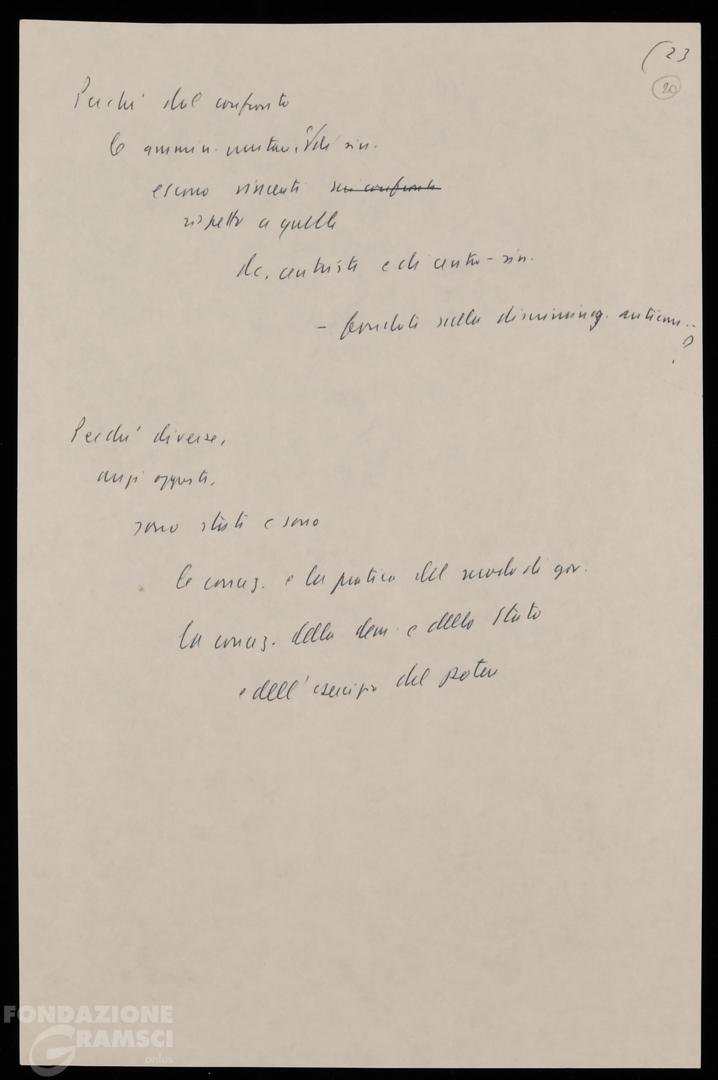 (23
20
Perché dal confronto
le ammin. unitarie di sin.
escono vincenti nei confronti
rispetto a quelle
dc, centriste e di centro-sin.
- fondate sulla discriminaz. anticom..
?
Perché diverse,
anzi opposte,
sono state e sono
la concez. e la pratica del modo di gov.
la concez. della dem. e dello Stato
e dell'esercizio del potere
FONDAZIONE
GRAMSCI
onlus